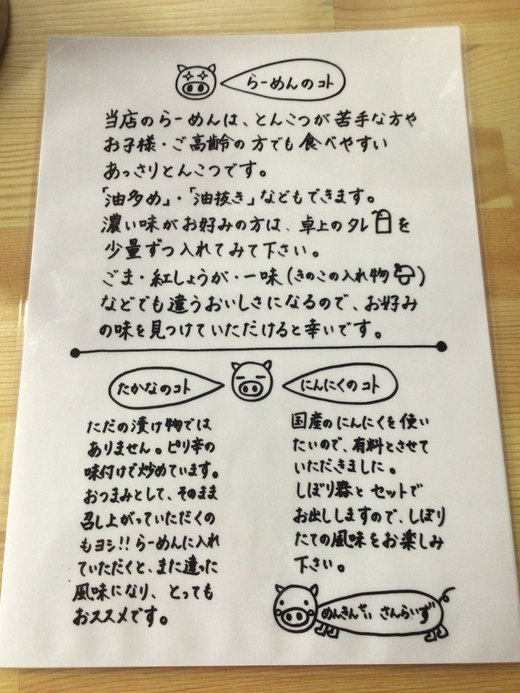 らーめんのコト
当店のらーめんは、とんこつが苦手な方や
お子様・ご高齢の方でも食べやすい
あっさりとんこつです。
「油多め」・「油抜き」などもできます。
濃い味がお好みの方は、卓上のタレを
少量ずつ入れてみて下さい。
ごま・紅しょうが・一味(きのこの入れ物)
などでも違うおいしさになるので、お好み
の味を見つけていただけると幸いです。
たかなのコト
ただの漬け物では
ありません。ピリ辛の
味付けで炒めています。
おつまみとして、そのまま
召し上がっていただくの
もヨシ!!らーめんに入れ
ていただくと、また違った
風味になり、とっても
おススメです。
にんにくのコト
国産のにんにくを使い
たいので、有料とさせて
いただきました。
しぼり器とセットで
お出ししますので、しぼり
たての風味をお楽しみ
下さい。
めんきんせい さんらいず